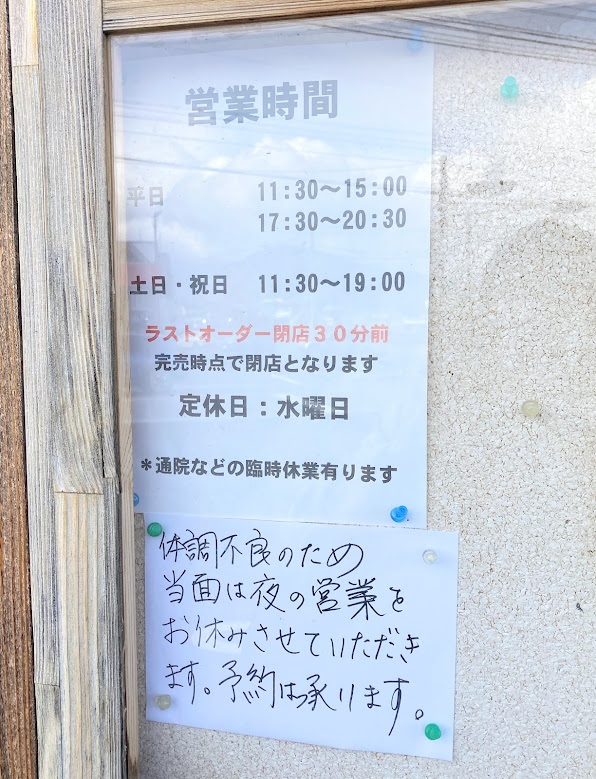 営業時間
平日 11:30〜15:00
17:30〜20:30
土日・祝日 11:30〜19:00
ラストオーダー閉店３０分前
完売時点で閉店となります
定休日：水曜日
＊通院などの臨時休業有ります
体調不良のため
当面は夜の営業を
お休みさせていただき
ます。予約は承ります。